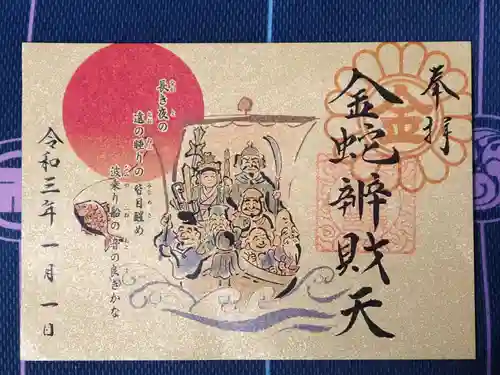 奉拝
金
金蛇辨財天
長き夜の
遠の睡りの 皆目醒め
波乗り船の 音の良きかな
令和三年一月一日